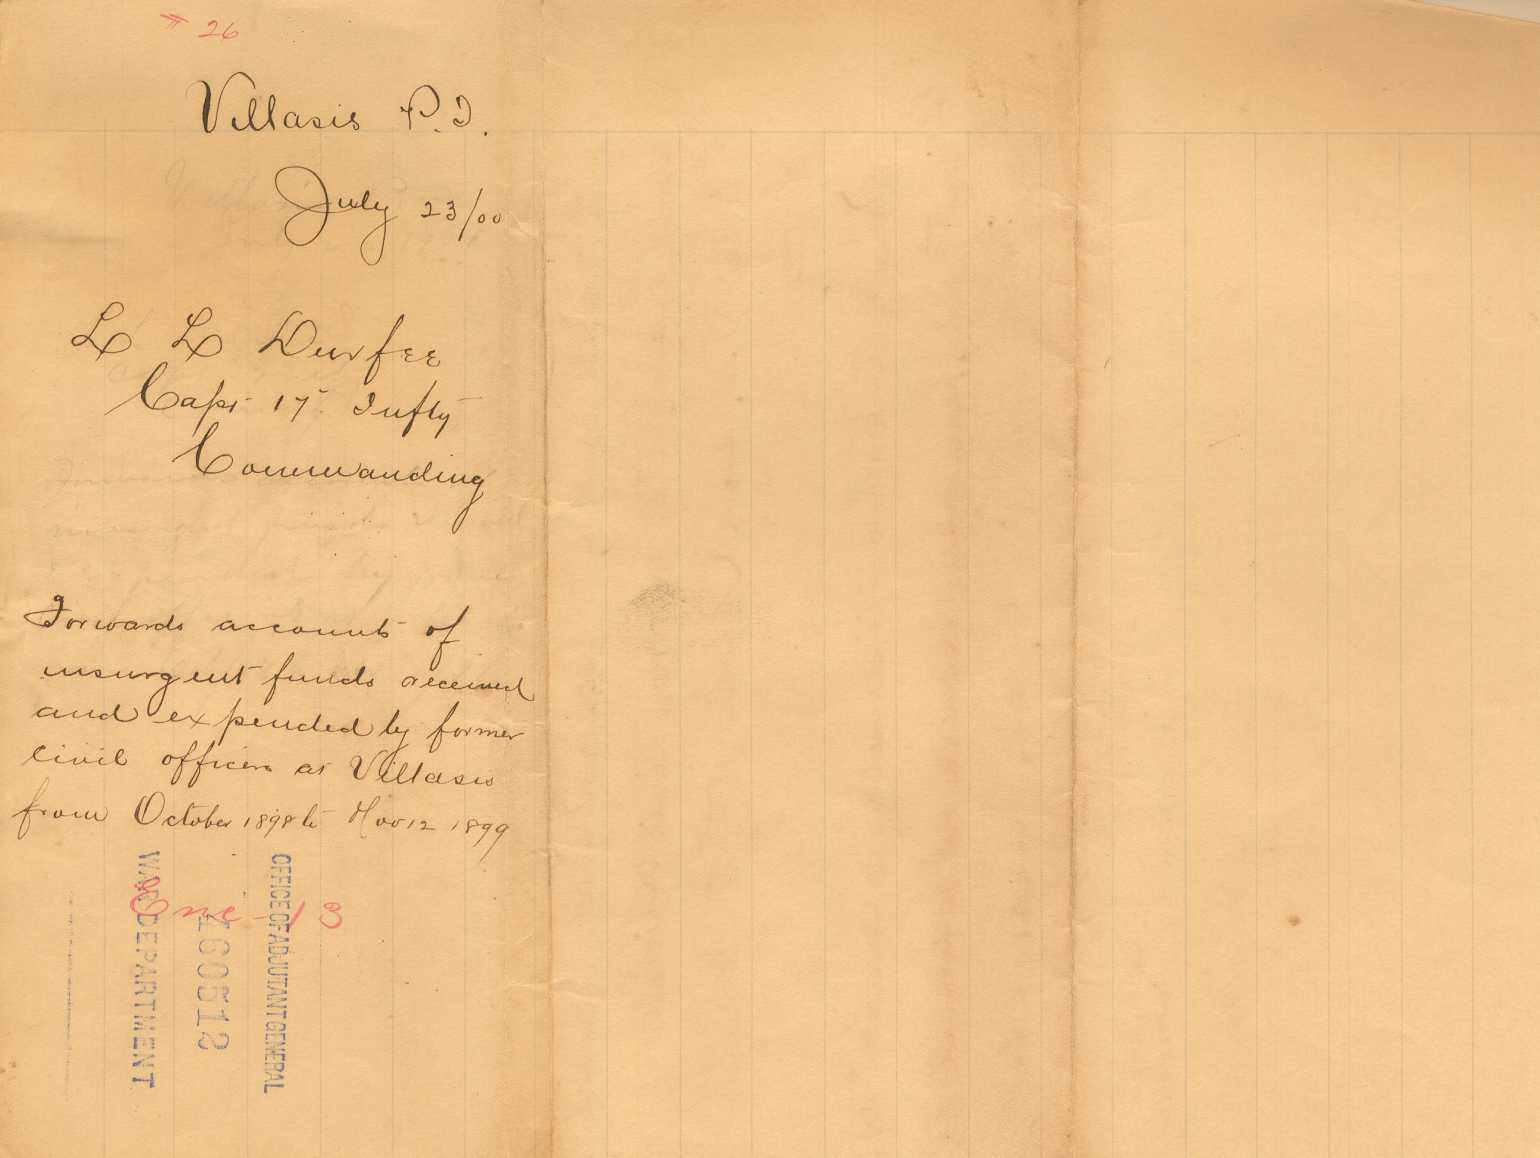 # 26
Villasis P.I.
July 23/00
L L Durfee
Capt 17 Infty
Commanding
Forwards accounts of
insurgent funds received
and expended by former
civil officers at Villasis
from October 1898 to Nov 12 1899
OFFICE OF ADJUTANT GENERAL
160512
WAR DEPARTMENT
Enc - 13